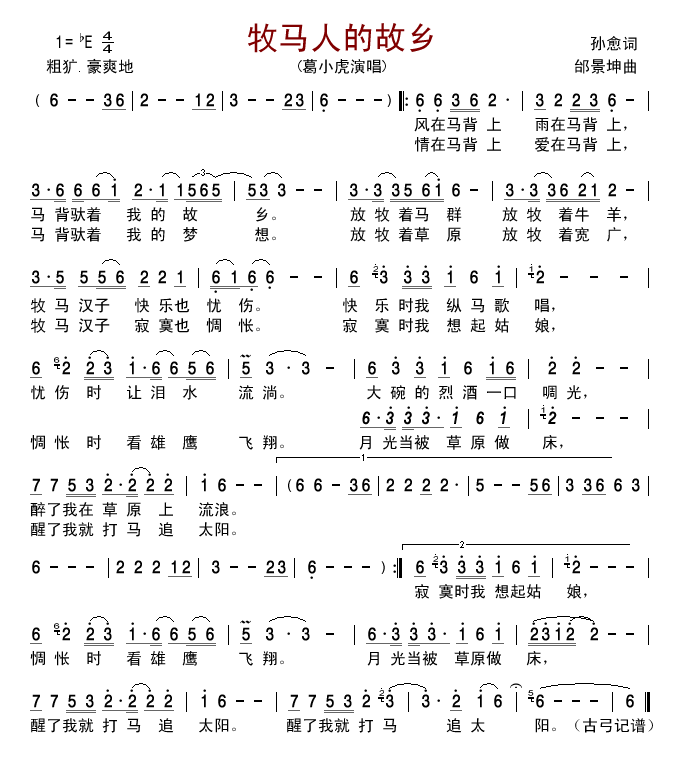 牧马人的故乡
1=♭E 4/4
孙愈词
粗犷.豪爽地
(葛小虎演唱)
邰景坤曲
( 6 - - 36 | 2 - - 12 | 3 - - 23 | 6 - - - ) |: 6 6 36 2· | 3 2 23 6 - |
风在马背 上 雨在马背 上,
情在马背 上 爱在马背 上,
3·6 661 2·1 1565 | 53 3 - - | 3·3 3561 6 - | 3·3 3621 2 - |
马 背驮着 我 的 故 乡。 放 牧 着马 群 放 牧 着牛 羊,
马 背驮着 我 的 梦 想。 放 牧 着草 原 放 牧 着宽 广,
3·5 556 22 1 | 6166 - - | 6 3 33 1 6 1 | 2 - - - |
牧 马 汉子 快 乐也 忧 伤。 快 乐 时我 纵 马 歌 唱,
牧 马 汉子 寂 寞也 惆 怅。 寂 寞 时我 想 起 姑 娘,
6 2 23 1·6 656 | 5 3·3 - | 6 3 3 1 6 16 | 2 2 - - |
忧 伤 时 让 泪 水 流 淌。 大 碗 的 烈 酒 一口 啁 光,
6·3 33·1 6 1 | 2 - - - |
惆 怅 时 看 雄 鹰 飞 翔。 月 光当被 草 原 做 床,
7 7 53 2·2 2 2 | 1 6 - - | (6 6 - 36 | 2 2 2 2· | 5 - - 56 | 3 36 6 3 |
1
醉了我在 草 原 上 流浪。
醒了我就 打 马 追 太阳。
6 - - - | 2 2 2 12 | 3 - - 23 | 6 - - - ) :| 6 3 33 1 6 1 | 2 - - - |
2
寂 寞时我 想起姑 娘,
6 2 23 1·6 656 | 5 3·3 - | 6·3 33·1 6 1 | 2312 2 - - |
惆 怅 时 看 雄 鹰 飞 翔。 月 光当被 草原做 床,
7 7 53 2·2 2 2 | 1 6 - - | 7 7 53 2·2 2 3 | 3·2 1 6 | 6 - - - | 6 ‖
醒了我就 打 马 追 太阳。 醒了我就 打 马 追 太 阳。(古弓记谱)